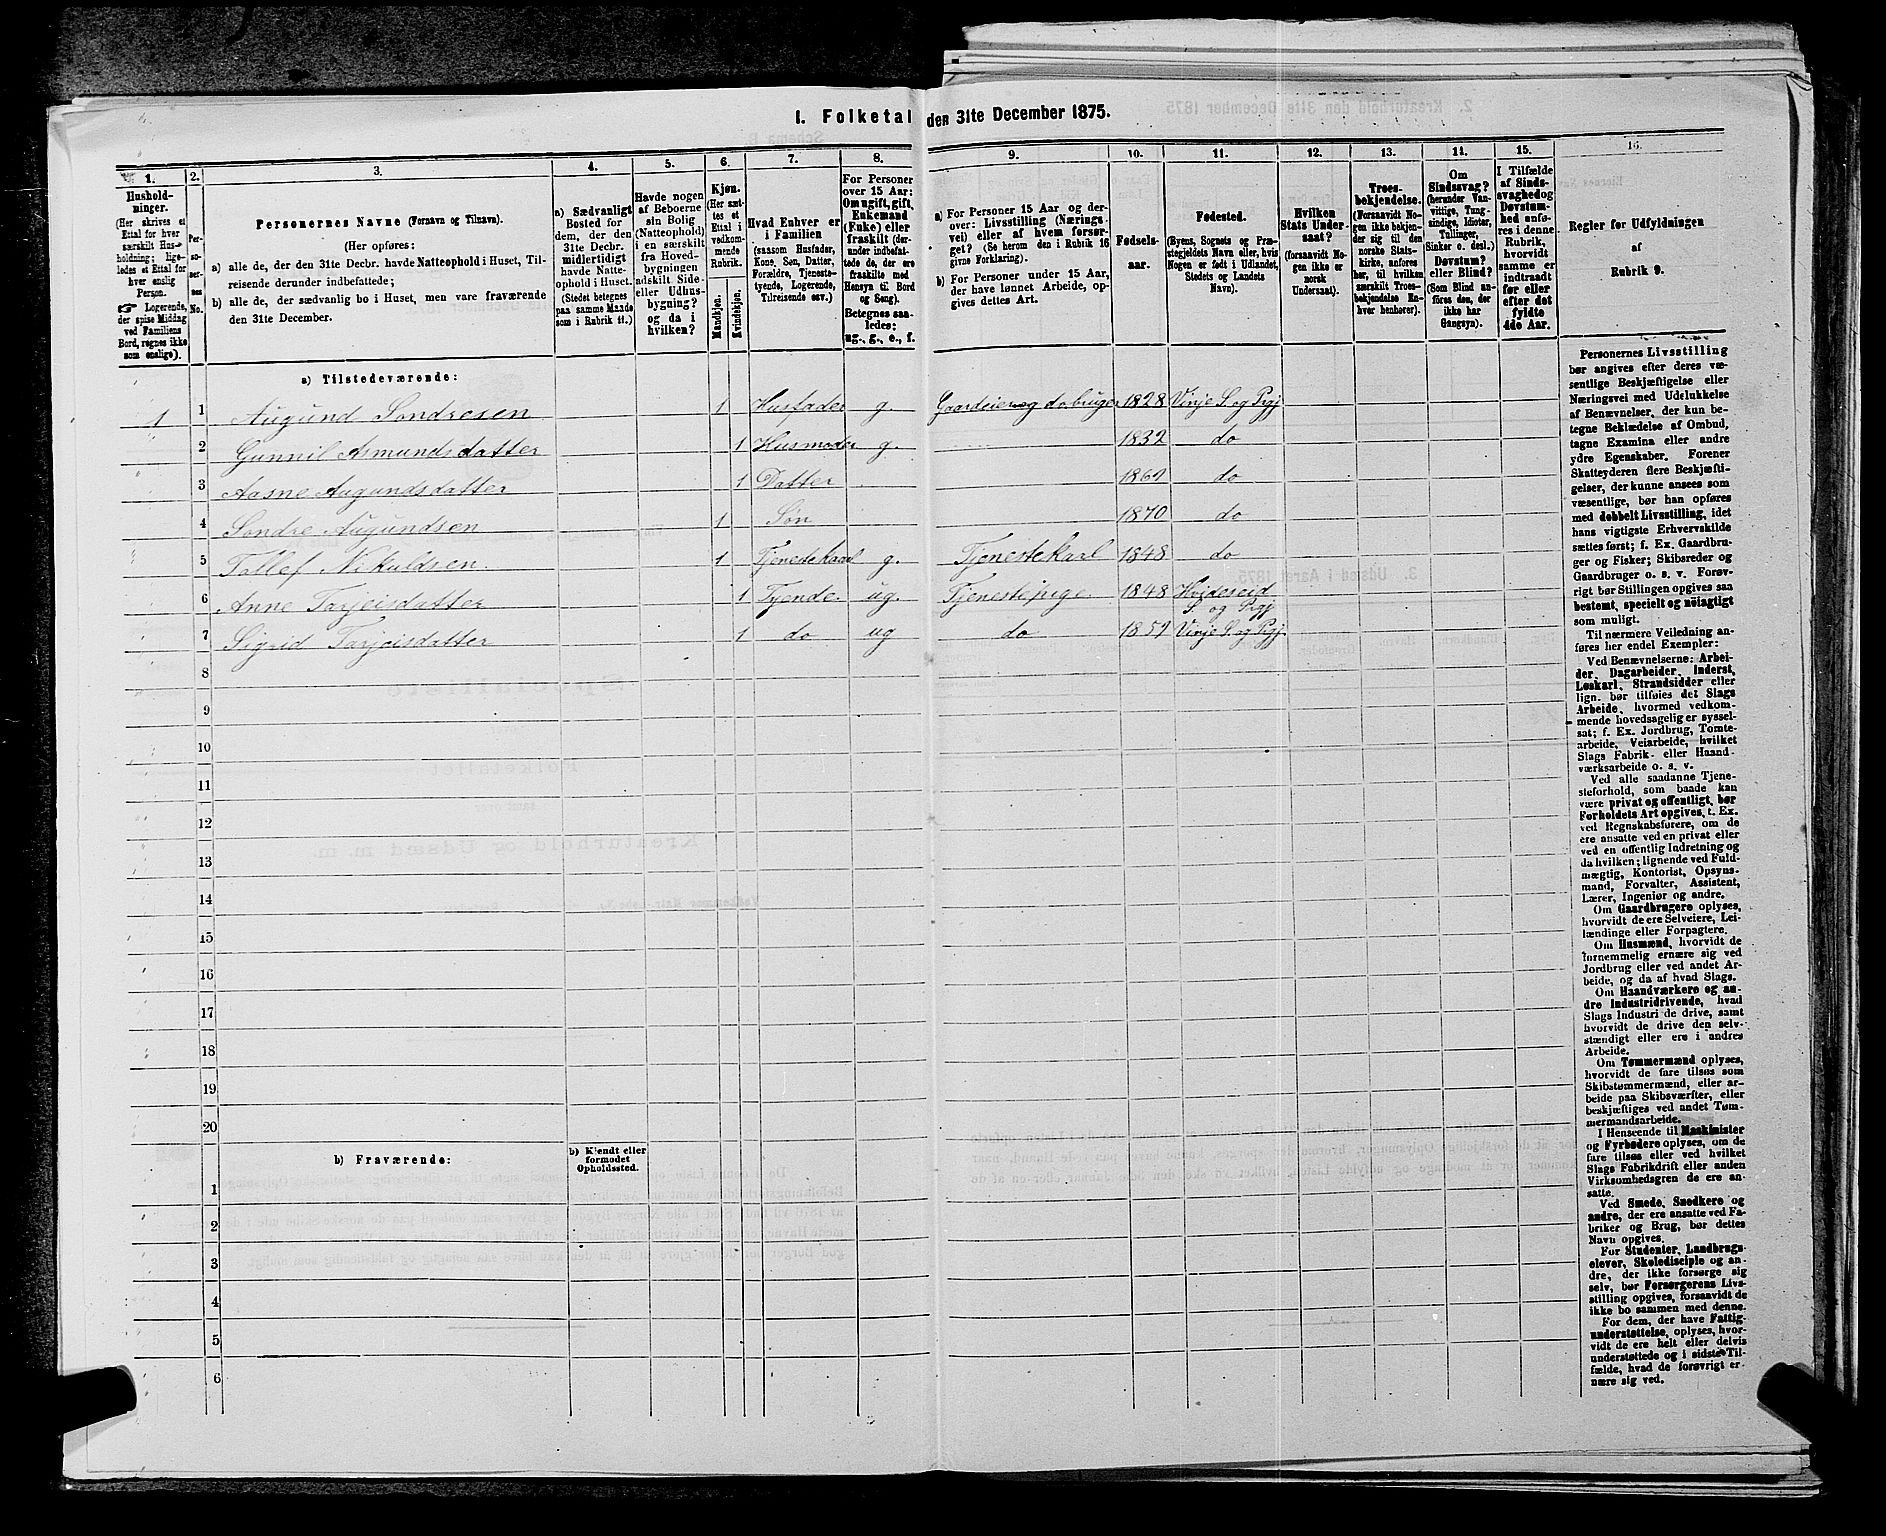 I. Folketal den 31te December 1875.
1. 2. 3. 4. 5. 6. 7. 8. 9. 10. 11. 12. 13. 14. 15. 16.
Hushold-
ninger.
(Her skrives et
Ettal for hver
særskilt Hus-
holdning; lige-
ledes et Ettal for
hver enslig
Person.
☞ Logerende,
der spise Middag
ved Familiens
Bord, regnes ikke
som enslige).
Per-
so-
ner-
nes
No.
Personernes Navne (Fornavn og Tilnavn).
(Her opføres:
a) alle de, der den 31te Decbr. havde Natteophold i Huset, Til-
reisende derunder indbefattede;
b) alle de, der sædvanlig bo i Huset, men vare fraværende
den 31te December.
a) Sædvanligt
Bosted for
dem, der den
31te Decbr.
midlertidigt
havde Natte-
ophold i Huset.
(Stedet betegnes
paa samme Maade
som i Rubrik 11.)
Havde nogen
af Beboerne
sin Bolig
(Natteophold)
i en særskilt
fra Hoved-
bygningen
adskilt Side-
eller Udhus-
bygning?
og da i
hvilken?
Kjøn.
(Her sæt-
tes et
Ettal i
vedkom-
mende
Rubrik.
Mandkjøn.
Kvindekjøn.
Hvad Enhver er
i Familien
(saasom Husfader,
Kone, Søn, Datter,
Forældre, Tjeneste-
tyende, Logerende,
Tilreisende osv.)
For Personer
over 15 Aar:
Om ugift, gift,
Enkemand
(Enke) eller
fraskilt (der-
under indbefat-
tede de, der ere
fraskilte med
Hensyn til Bord
og Seng).
Betegnes saa-
ledes:
ug., g., e., f.
a) For Personer 15 Aar og der-
over: Livsstilling (Nærings-
vei) eller af hvem forsør-
get? (Se herom den i Rubrik 16
givne Forklaring).
b) For Personer under 15 Aar,
der have lønnet Arbeide, op-
gives dettes Art.
Fødsels-
aar.
Fødested.
(Byens, Sognets og Præ-
stegjeldets Navn eller, hvis
Nogen er født i Udlandet,
Stedets og Landets
Navn).
Hvilken
Stats Under-
saat?
(forsaavidt No-
gen ikke er
norsk
Undersaat).
Troes-
bekjendelse.
(Forsaavidt No-
gen ikke bekjen-
der sig til den
norske Stats-
kirke, anføres
her, til hvilken
særskilt Troes-
bekjendelse En-
hver henhører).
Om
Sindssvag?
(herunder Van-
vittige, Tung-
sindige, Idioter,
Tullinger,
Sinker o. desl.)
Døvstum?
eller Blind?
(Som Blind an-
føres den, der
ikke har
Gangsyn).
I Tilfælde
af Sinds-
svaghed og
Døvstum-
hed anfø-
res i denne
Rubrik,
hvorvidt
samme er
indtraadt
før eller
efter det
fyldte
4de Aar.
Regler for Udfyldningen
af
Rubrik 9.
a) Tilstedeværende:
1 1 Augund Sondresen 1 Husfader g. Gaardeier og do bruger 1828 Vinje S. og Prgj
2 Gunnil Asmundsdatter 1 Husmoder g. 1832 do
3 Aasne Augundsdatter 1 Datter 1869 do
4 Sondre Augundsen 1 Søn 1870 do
5 Tollef Nikuldsen 1 Tjenestekaal g. Tjenestekarl 1848 do
6 Anne Tarjeisdatter 1 Tjende. ug. Tjenestepige 1848 Hvideseid
S. og Prgj
7 Sigrid Tarjeisdatter 1 do ug do 1859 Vinje S. og Prgj.
8
9
10
11
12
13
14
15
16
17
18
19
20
b) Fraværende:
b) Kjendt eller
formodet
Opholdssted.
1
2
3
4
5
6
Personernes Livsstilling
bør angives efter deres væ-
sentlige Beskjæftigelse eller
Næringsvei med Udelukkelse
af Benævnelser, der kun be-
tegne Beklædelse af Ombud,
tagne Examina eller andre
ydre Egenskaber. Forener
Skatteyderen flere Beskjæfti-
gelser, der kunne ansees som
væsentlige, bør han opføres
med dobbelt Livsstilling, idet
hans vigtigste Erhvervskilde
sættes først; f. Ex. Gaardbru-
ger og Fisker; Skibsreder og
Gaardbruger o. s. v. Forøv-
rigt bør Stillingen opgives saa
bestemt, specielt og nøiagtigt
som muligt.
Til nærmere Veiledning an-
føres her endel Exempler:
Ved Benævnelserne: Arbei-
der, Dagarbeider, Inderst,
Løskarl, Strandsidder eller
lign. bør tilføies det Slags
Arbeide, hvormed vedkom-
mende hovedsagelig er syssel-
sat; f. Ex. Jordbrug, Tomte-
arbeide, Veiarbeide, hvilket
Slags Fabrik- eller Haand-
værksarbeide o. s. v.
Ved alle saadanne Tjene-
steforhold, som baade kan
være privat og offentligt, bør
Forholdets Art opgives, t. Ex.
ved Regnskabsførere, om de
ere ansatte ved en privat eller
ved en offentlig Indretning og
da hvilken; lignende ved Fuld-
mægtig, Kontorist, Opsyns-
mand, Forvalter, Assistent,
Lærer, Ingeniør og andre.
Om Gaardbrugere oplyses,
hvorvidt de ere Selveiere, Lei-
lændinge eller Forpagtere.
Om Husmænd, hvorvidt de
fornemmelig ernære sig ved
Jordbrug eller ved andet Ar-
beide, og da af hvad Slags.
Om Haandværkere og an-
dre Industridrivende, hvad
Slags Industri de drive, samt
hvorvidt de drive den selv-
stændigt eller ere i andres
Arbeide.
Om Tømmermænd oplyses,
hvorvidt de fare tilsøs som
Skibstømmermænd, eller ar-
beide paa Skibsværfter, eller
beskjæftiges ved andet Tøm-
mermandsarbeide.
I Henseende til Maskinister
og Fyrbødere oplyses, om de
fare tilsøs eller ved hvilket
Slags Fabrikdrift eller anden
Virksomhedsgren de ere an-
satte.
Ved Smede, Snedkere og
andre, der ere ansatte ved Fa-
briker og Brug, bør dettes
Navn opgives.
For Studenter, Landbrugs-
elever, Skoledisciple og an-
dre, der ikke forsørge sig
selv, bør Forsørgerens Livs-
stilling opgives, forsaavidt de
ikke bo sammen med denne.
For dem, der have Fattig-
understøttelse, oplyses, hvor-
vidt de ere helt eller delvis
understøttede og i sidste Til-
fælde, hvad de forøvrigt er-
nære sig ved.